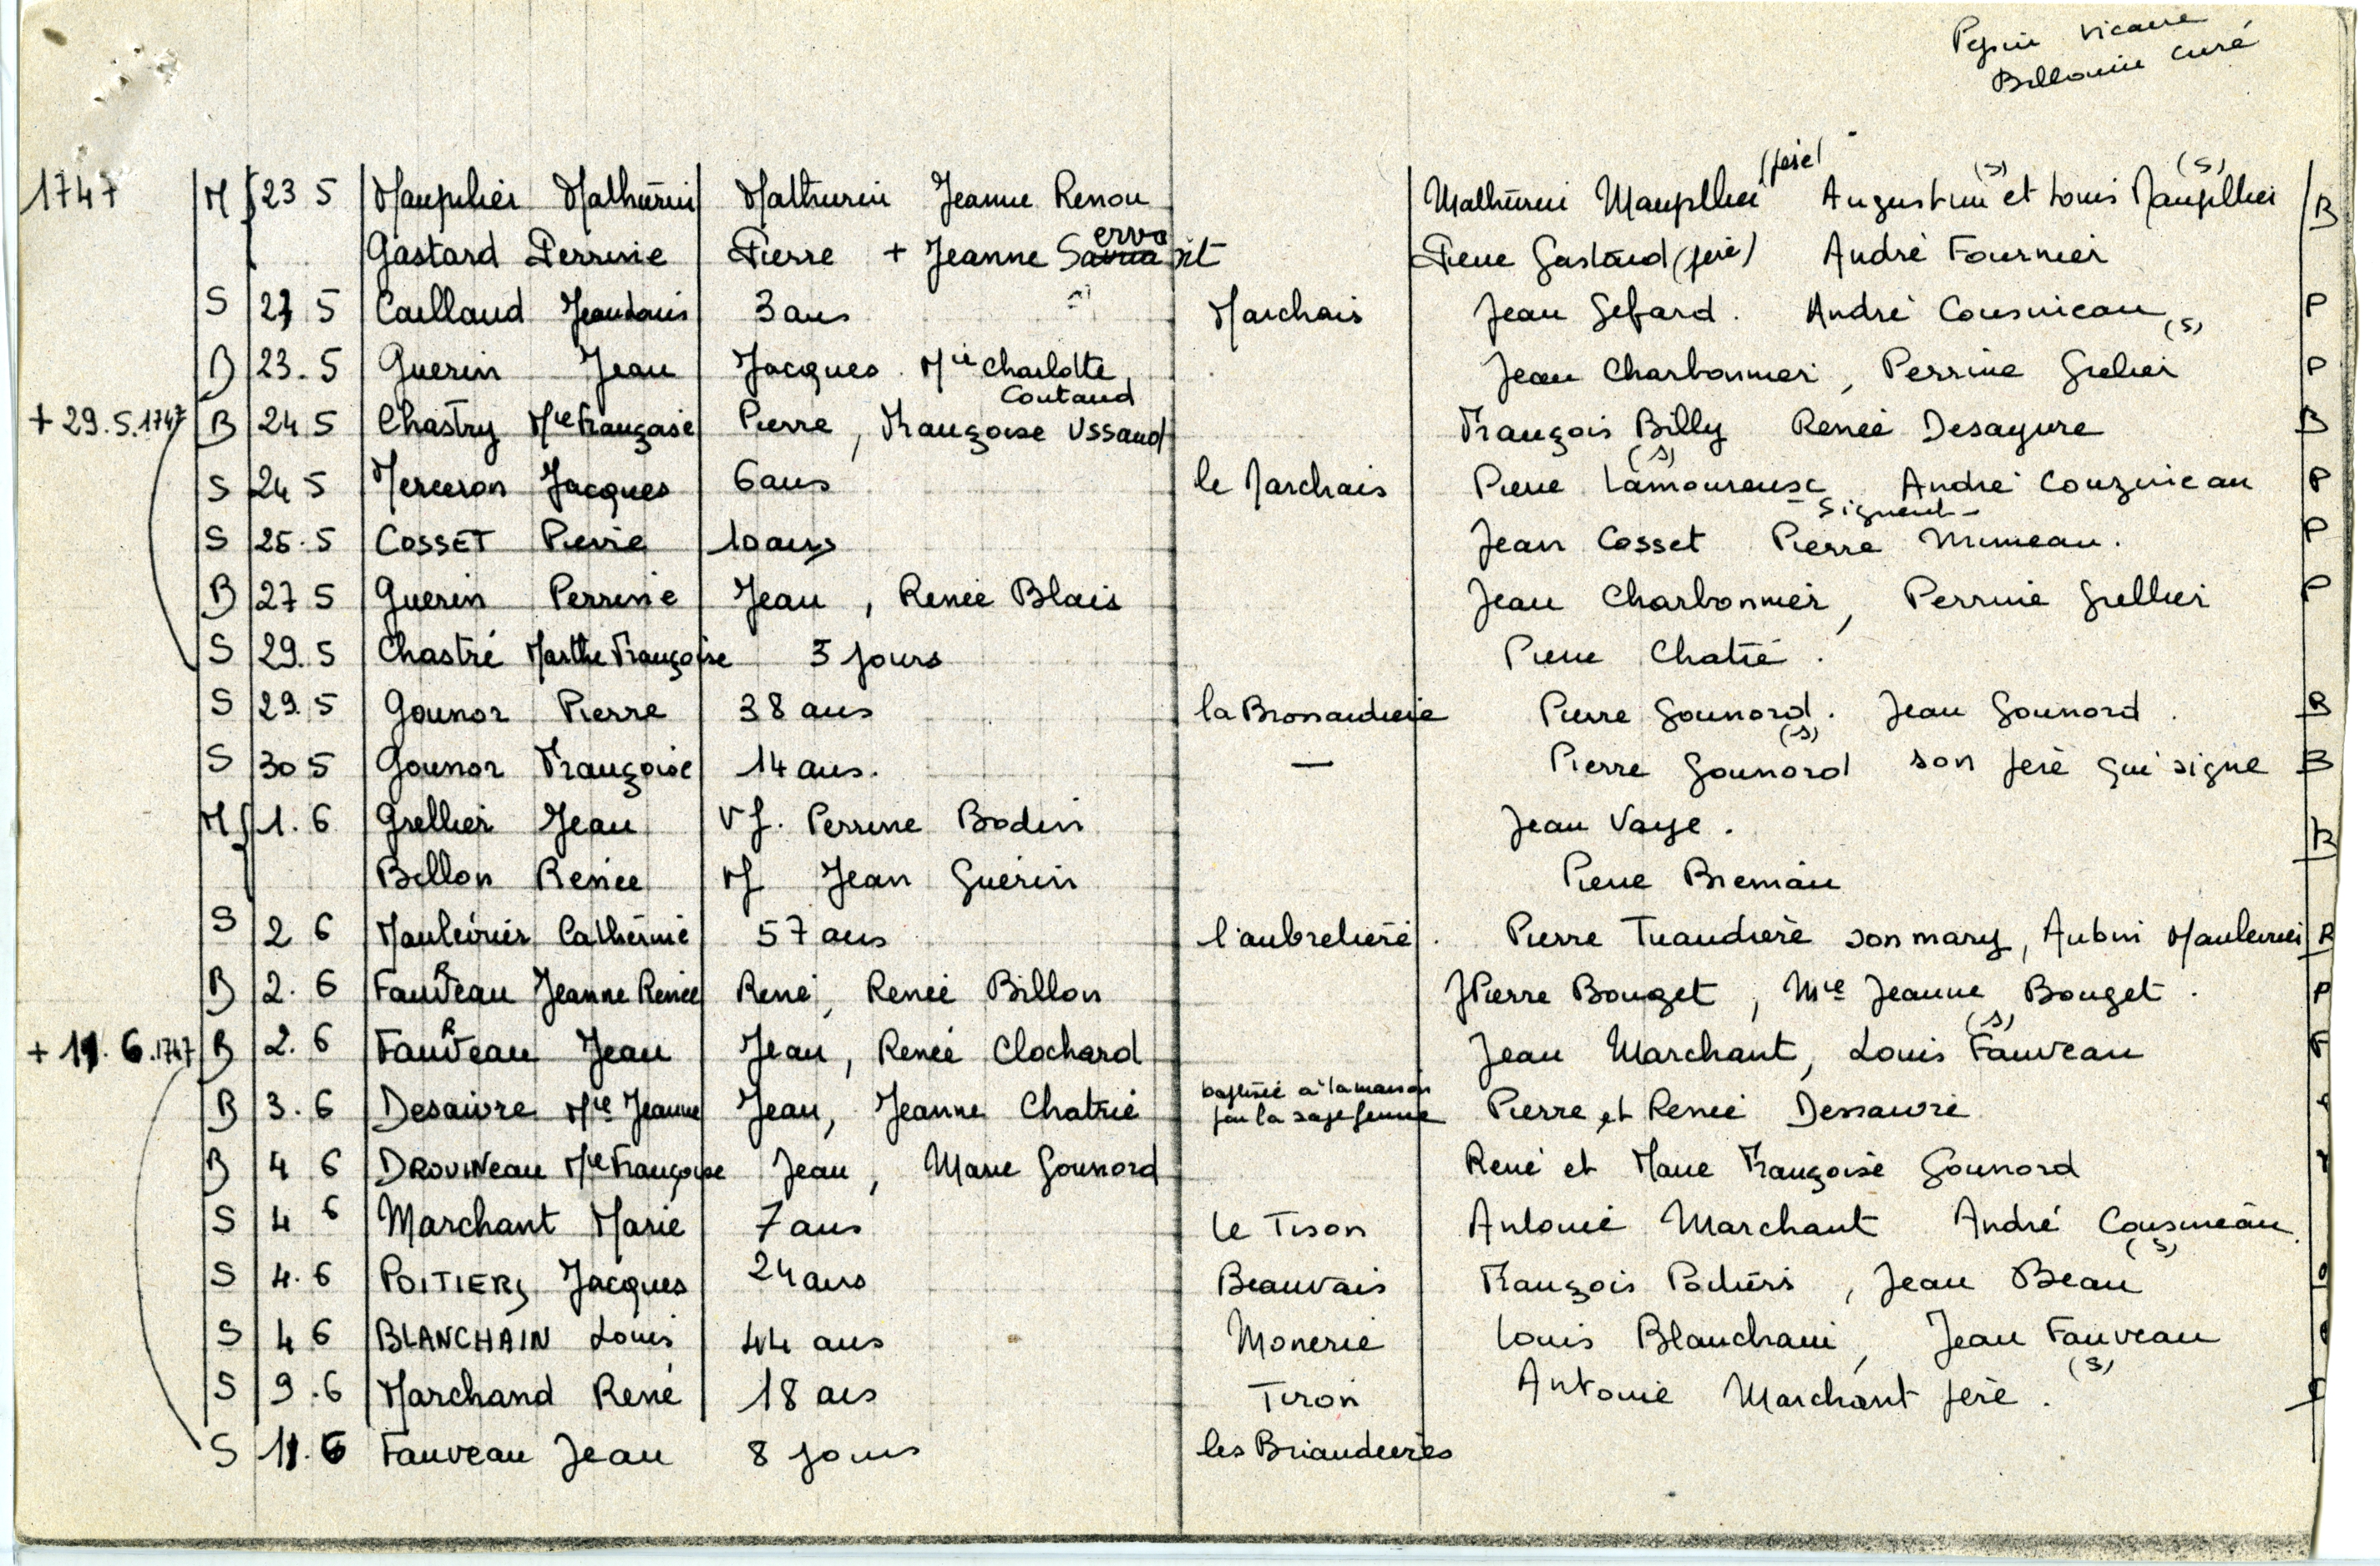 vicaire
curé
(père) (s) (s)
1747 M 23 5 Maupilier Mathurin Mathurin Jeanne Renou Mathurin Maupllier Augustin et Louis Maupllier B
Gastard Perrine Pierre + Jeanne Servait Pierre Gastard (père) André Fournier
S 27 5 Caillaud Jean Louis 3 ans Marchais Jean Gefard. André Cousineau (s) P
B 23.5 Guerin Jean Jacques Mie Charlotte Jean Charbonnier, Perrine Grelier P
Coutaud
+ 29.5.1747 B 24 5 Chastry Mie Françoise Pierre, Françoise Ussaud François Billy Renée Desayure B
(s)
S 24 5 Merceron Jacques 6 ans le Marchais Pierre Lamoureuse André Couzineau P
- signent -
S 25.5 COSSET Pierre 10 ans Jean Cosset Pierre Mimeau. P
B 27 5 Guerin Perrine Jean, Renée Blais Jean Charbonnier, Perrine Grellier P
S 29.5 Chastré Marthe Françoise 5 jours Pierre Chatré.
S 29.5 Gounor Pierre 38 ans la Brossardière Pierre Gounord. Jean Gounord. B
(s)
S 30 5 Gounor Françoise 14 ans. — Pierre Gounord son père qui signe B
M 1.6 Grellier Jean Vf. Perrine Bodin Jean Vaye. B
Billon Renée Vf Jean Guérin Pierre Bremau
S 2 6 Maulévrier Catherine 57 ans l'aubrelière. Pierre Tuaudière son mary, Aubin Maulevrier B
R
B 2.6 Fauveau Jeanne Renée René, Renée Billon JPierre Bouget, Mie Jeanne Bouget. P
R (s)
+ 11.6.1747 B 2.6 Fauveau Jean Jean, Renée Clochard Jean Marchant, Louis Fauveau P
baptisée à la maison
B 3.6 Desaivre Mie Jeanne Jean, Jeanne Chatrié par la sage femme Pierre et Renée Dessaivre
B 4 6 DROUINeau Mie Françoise Jean, Marie Gounord René et Marie Françoise Gounord
S 4 6 Marchant Marie 7 ans le Tison Antoine Marchant André Cousineau.
(s)
S 4.6 POITIERS Jacques 24 ans Beauvais François Poitiers, Jean Beau
S 4 6 BLANCHAIN Louis 44 ans Monerie Louis Blanchain, Jean Fauveau
(s)
S 9.6 Marchand René 18 ans Tiron Antoine Marchant père.
S 11.6 Fauveau Jean 8 jours les Briaudières